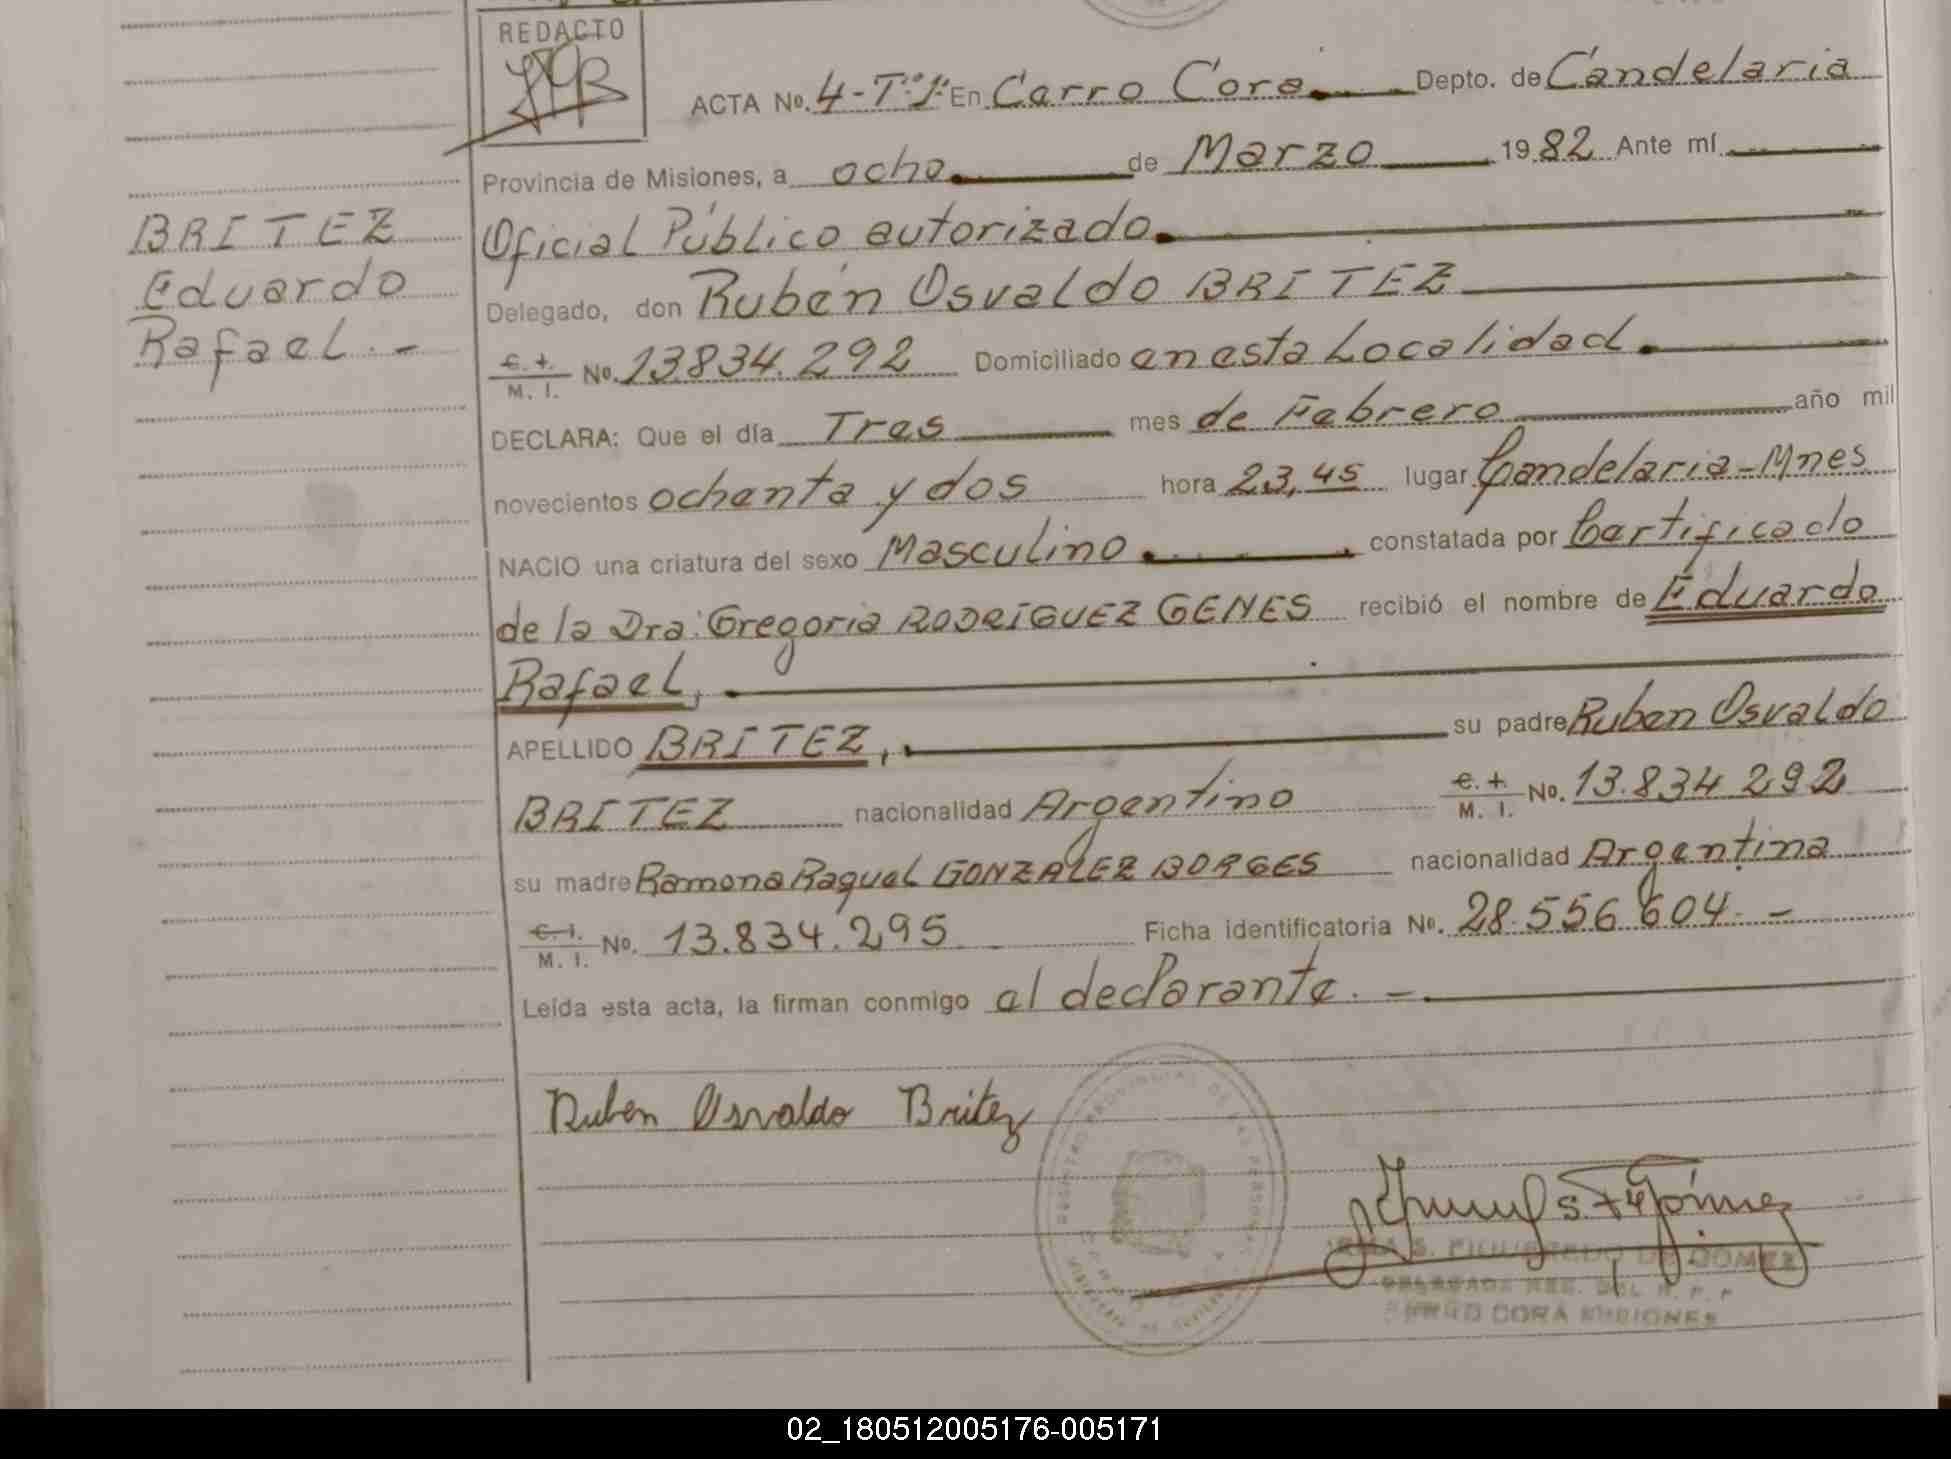 REDACTO
ACTA No. 4-Tº1º En Cerro Corá Depto. de Candelaria
Provincia de Misiones, a ocho de Marzo 1982 Ante mí
BRITEZ
Oficial Público autorizado.
Eduardo
Delegado, don Rubén Osvaldo BRITEZ
Rafael.-
C. I. M. I. No. 13.834.292 Domiciliado en esta Localidad.
DECLARA: Que el día Tres mes de Febrero año mil
novecientos ochenta y dos hora 23,45 lugar Candelaria-Mnes
NACIO una criatura del sexo Masculino constatada por Certificado
de la Dra. Gregoria RODRÍGUEZ GENES recibió el nombre de Eduardo
Rafael,
APELLIDO BRITEZ, su padre Ruben Osvaldo
BRITEZ nacionalidad Argentino C. I. M. I. No. 13.834.292
su madre Ramona Raquel GONZALEZ BORGES nacionalidad Argentina
C. I. M. I. No. 13.834.295 Ficha identificatoria No. 28.556.604.-
Leída esta acta, la firman conmigo el declarante.-
Ruben Osvaldo Britez
S. FIGUEREDO DE GOMEZ
DELEGADA REG. DEL R. P. P
CERRO CORA MISIONES
02_180512005176-005171